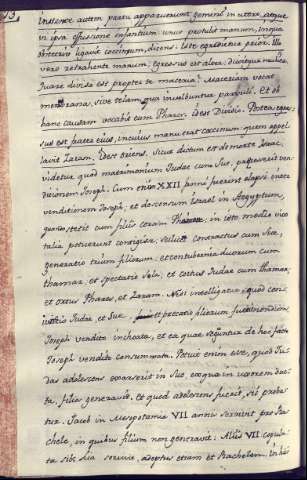 13.
instante autem partu apparuerunt gemini in utero, atque
in ipsa effusione infantium unus protulit manum, in qua
obstetrix ligavit coccinum, dicens. Iste egredietur prior. Illo
vero retrahente manum, egressus est alter. Dixitque mulier,
Quare divisa est propter te maceria? Maceriam vocat
membranam, sive telam, qua involvuntur parvuli. Et ob
hanc causam vocabit eum Phares. idest Divisio. Postea egres
sus est frater eius, in cuius manu erat coccinum quem appel
lavit Zaram. Idest oriens. Sicut dictum est de morte Isaac,
videtur quod matrimonium Judae cum Sue, praecesserit ven
ditionem Joseph. Cum enim XXII anni fuerint elapsi inter
venditionem Joseph, et descensum Israel in Aegyptum,
cum filiis
talia potuerunt contigisse, scilicet contractus cum Sue,
generatio trium filiorum: et contubernia duorum cum
Thamar, et expectatio Sela, et coitus Judae cum Thamar,
et ortus Phares, et Zaram. Nisi intelligatur quod con
Judae, et Sue, et procreatio filiorum, fuit
Joseph vendito inchoata, et ea quae sequuntur de his facta
Joseph vendito consummata. Potuit enim esse, quod Ju
das adolescens exarserit in Sue, eaque in uxorem duc
ta, filios generavit. Et quod adolescens fuerit, sic proba
tur. Jacob in Mesopotamia VII annis servivit pro Ra
chele, in quibus filium non generavit: Aliis VII copula
ta sibi Lia servivit, adeptus etiam et Rachelem. In his